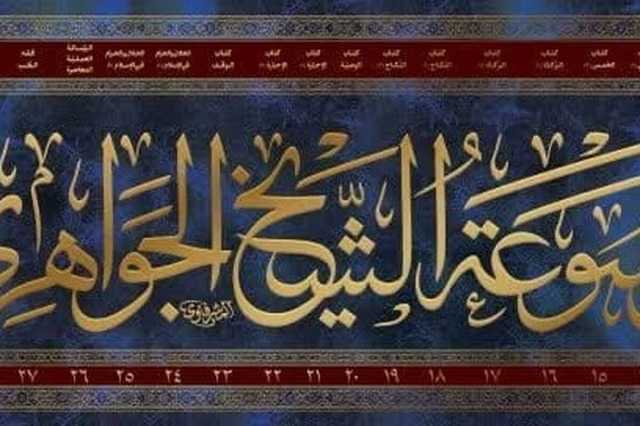 كتاب الخمس
كتاب الزكاة
كتاب الزكاة
كتاب النكاح
كتاب النكاح
كتاب الوصية
كتاب الإجارة
كتاب الإجارة
كتاب الوقف
الحلال والحرام
في الإسلام
الحلال والحرام
في الإسلام
الرسالة
العملية
المعاصرة
سوعة الشيخ الجواهري
١٥ ١٦ ١٧ ١٨ ١٩ ٢٠ ٢١ ٢٢ ٢٣ ٢٤ ٢٥ ٢٦ ٢٧